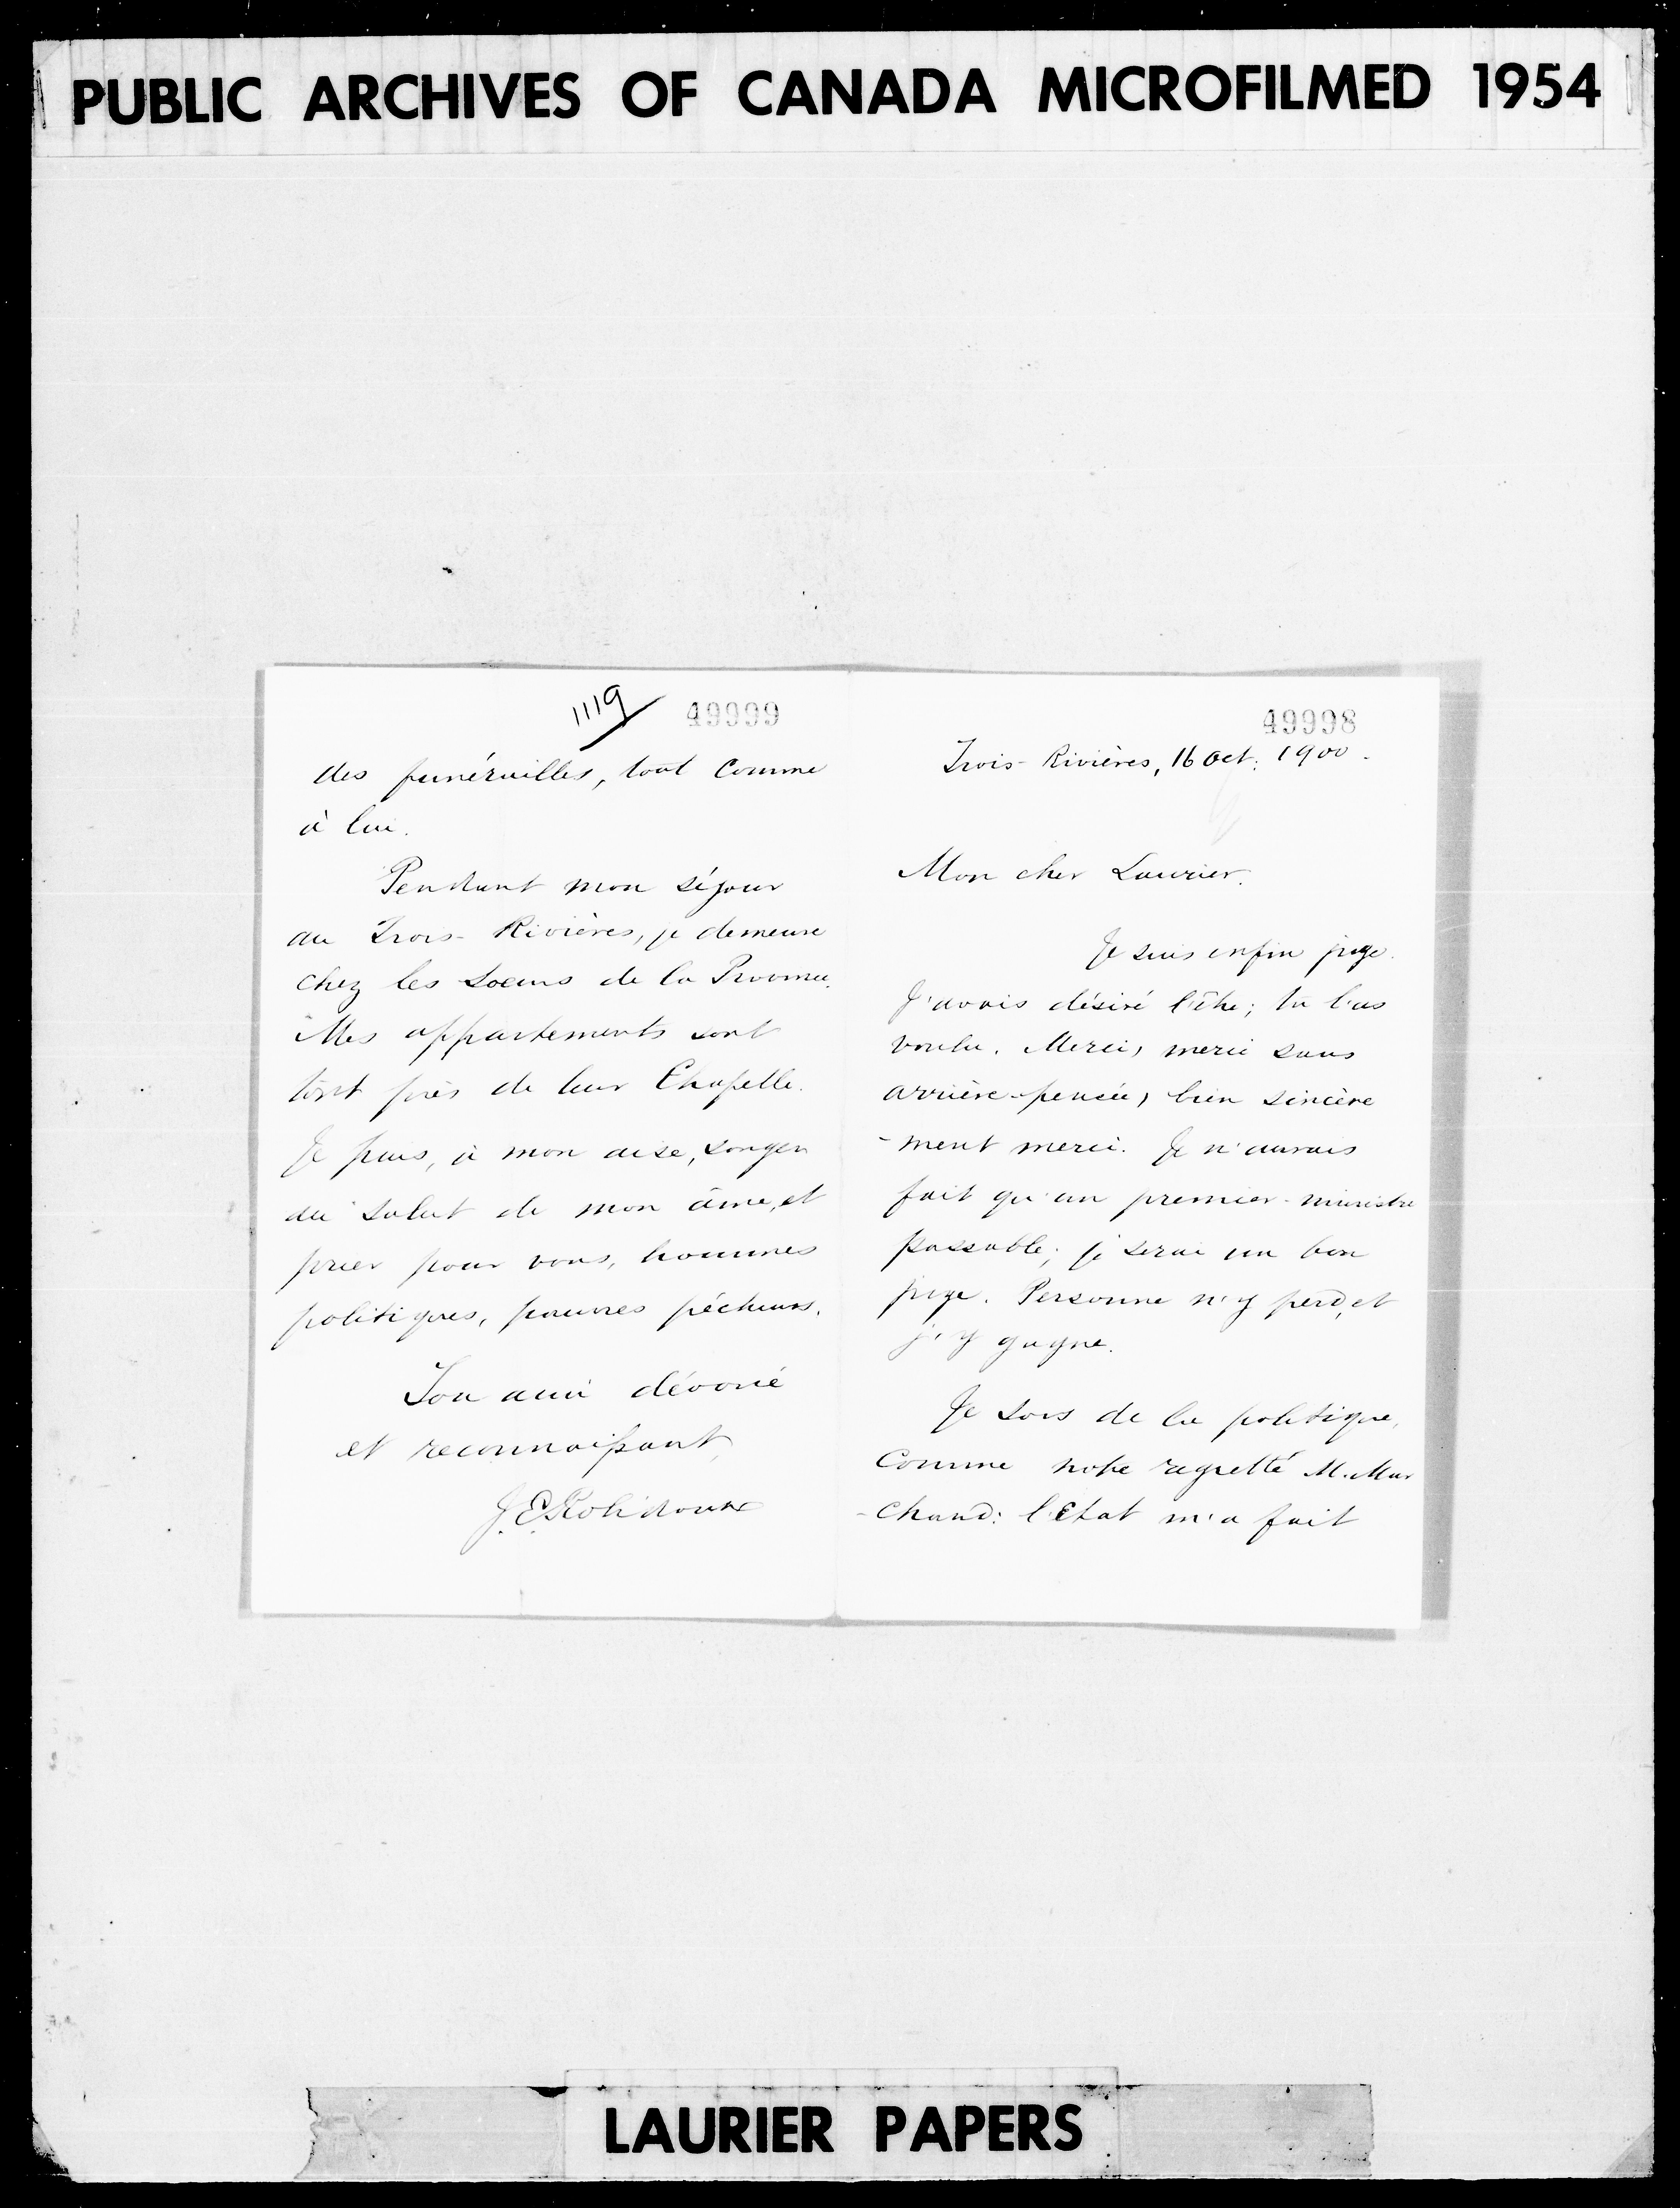 PUBLIC ARCHIVES OF CANADA MICROFILMED 1954
49998
Trois-Rivières, 16 Oct: 1900.
Mon cher Laurier.
Je suis enfin juge.
J'avais désiré l'être; tu l'as
voulu. Merci, merci sans
arrière-pensée, bien sincère
-ment merci. Je n'aurais
fait qu'un premier-ministre
passable; je serai un bon
juge. Personne n'y perd, et
j'y gagne.
Je sors de la politique,
comme notre regretté M. Mar
-chand: l'Etat m'a fait
1119
49999
des funérailles, tout comme
à lui.
Pendant mon séjour
au Trois-Rivières, je demeure
chez les Soeurs de la
Mes appartements sont
tout près de leur Chapelle.
Je puis, à mon aise, songer
au salut de mon âme, et
prier pour vous, hommes
politiques, pauvres pécheurs.
Ton ami dévoué
et reconnaissant,
J. E. Robidoux
LAURIER PAPERS